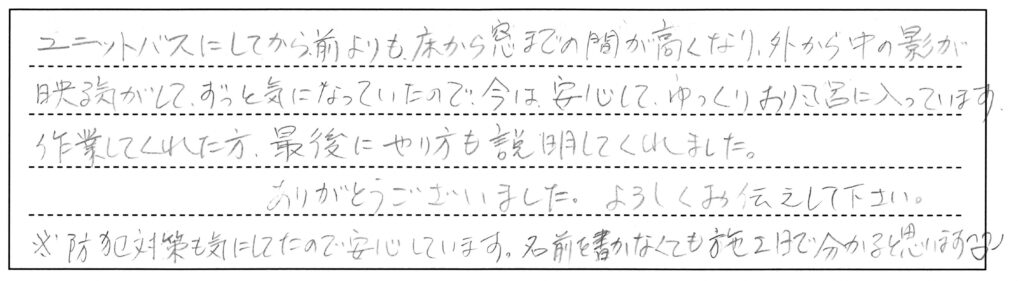 ユニットバスにしてから、前よりも、床から窓までの間が高くなり、外から中の影が
映る気がして、ずっと気になっていたので、今は、安心して、ゆっくりおり呂に入っています。
作業してくれた方、最後にやり方も説明してくれました。
ありがとうございました。よろしくお伝えして下さい。
※防犯対策も気にしてたので安心しています。名前を書かなくても施工日で分かると思いますが